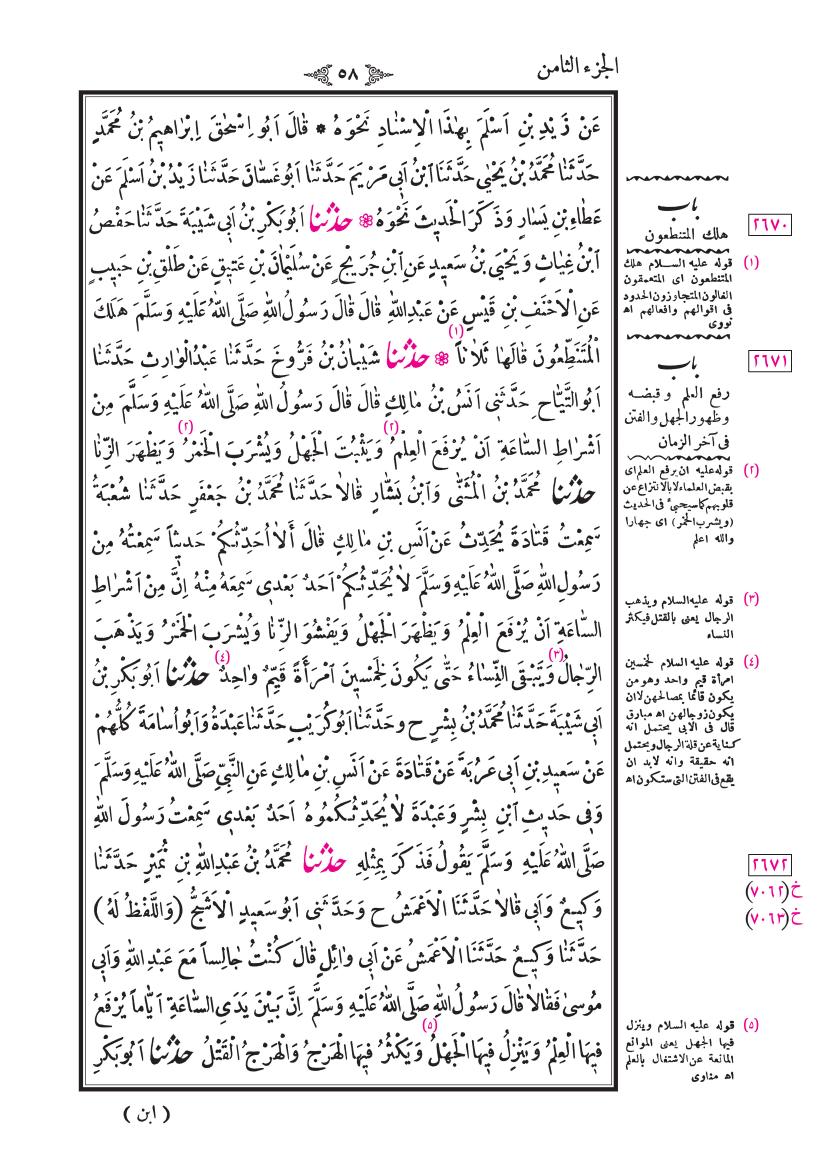 الجزء الثامن
٥٨
عَنْ زَيْدِ بْنِ اَسْلَمَ بِهٰذَا الْاِسْنَادِ نَحْوَهُ * قَالَ اَبُو اِسْحٰقَ اِبْرَاهِيمُ بْنُ مُحَمَّدٍ
حَدَّثَنَا مُحَمَّدُ بْنُ يَحْيٰى حَدَّثَنَا ابْنُ اَبِى مَرْيَمَ حَدَّثَنَا اَبُو غَسَّانَ حَدَّثَنَا زَيْدُ بْنُ اَسْلَمَ عَنْ
عَطَاءِ بْنِ يَسَارٍ وَذَكَرَ الْحَدِيثَ نَحْوَهُ ❁ حَدَّثَنَا اَبُو بَكْرِ بْنُ اَبِى شَيْبَةَ حَدَّثَنَا حَفْصُ
ابْنُ غِيَاثٍ وَيَحْيَى بْنُ سَعِيدٍ عَنِ ابْنِ جُرَيْجٍ عَنْ سُلَيْمَانَ بْنِ عَتِيقٍ عَنْ طَلْقِ بْنِ حَبِيبٍ
عَنِ الْاَحْنَفِ بْنِ قَيْسٍ عَنْ عَبْدِاللهِ قَالَ قَالَ رَسُولُ اللهِ صَلَّى اللهُ عَلَيْهِ وَسَلَّمَ هَلَكَ
الْمُتَنَطِّعُونَ (١) قَالَهَا ثَلَاثاً ❁ حَدَّثَنَا شَيْبَانُ بْنُ فَرُّوخَ حَدَّثَنَا عَبْدُ الْوَارِثِ حَدَّثَنَا
اَبُو التَّيَّاحِ حَدَّثَنِى اَنَسُ بْنُ مَالِكٍ قَالَ قَالَ رَسُولُ اللهِ صَلَّى اللهُ عَلَيْهِ وَسَلَّمَ مِنْ
اَشْرَاطِ السَّاعَةِ اَنْ يُرْفَعَ الْعِلْمُ (٢) وَيَثْبُتَ الْجَهْلُ وَيُشْرَبَ الْخَمْرُ (٢) وَيَظْهَرَ الزِّنَا
حَدَّثَنَا مُحَمَّدُ بْنُ الْمُثَنّٰى وَابْنُ بَشَّارٍ قَالَا حَدَّثَنَا مُحَمَّدُ بْنُ جَعْفَرٍ حَدَّثَنَا شُعْبَةُ
سَمِعْتُ قَتَادَةَ يُحَدِّثُ عَنْ اَنَسِ بْنِ مَالِكٍ قَالَ اَلَا اُحَدِّثُكُمْ حَدِيثاً سَمِعْتُهُ مِنْ
رَسُولِ اللهِ صَلَّى اللهُ عَلَيْهِ وَسَلَّمَ لَا يُحَدِّثُكُمْ اَحَدٌ بَعْدِى سَمِعَهُ مِنْهُ اِنَّ مِنْ اَشْرَاطِ
السَّاعَةِ اَنْ يُرْفَعَ الْعِلْمُ وَيَظْهَرَ الْجَهْلُ وَيَفْشُوَ الزِّنَا وَيُشْرَبَ الْخَمْرُ وَيَذْهَبَ
الرِّجَالُ (٣) وَيَبْقَى النِّسَاءُ حَتّٰى يَكُونَ لِخَمْسِينَ امْرَأَةً قَيِّمٌ وَاحِدٌ (٤) حَدَّثَنَا اَبُو بَكْرِ بْنُ
اَبِى شَيْبَةَ حَدَّثَنَا مُحَمَّدُ بْنُ بِشْرٍ ح وَحَدَّثَنَا اَبُو كُرَيْبٍ حَدَّثَنَا عَبْدَةُ وَاَبُو اُسَامَةَ كُلُّهُمْ
عَنْ سَعِيدِ بْنِ اَبِى عَرُوبَةَ عَنْ قَتَادَةَ عَنْ اَنَسِ بْنِ مَالِكٍ عَنِ النَّبِىِّ صَلَّى اللهُ عَلَيْهِ وَسَلَّمَ
وَفِى حَدِيثِ ابْنِ بِشْرٍ وَعَبْدَةَ لَا يُحَدِّثُكُمُوهُ اَحَدٌ بَعْدِى سَمِعْتُ رَسُولَ اللهِ
صَلَّى اللهُ عَلَيْهِ وَسَلَّمَ يَقُولُ فَذَكَرَ بِمِثْلِهِ حَدَّثَنَا مُحَمَّدُ بْنُ عَبْدِاللهِ بْنِ نُمَيْرٍ حَدَّثَنَا
وَكِيعٌ وَاَبِى قَالَا حَدَّثَنَا الْاَعْمَشُ ح وَحَدَّثَنِى اَبُو سَعِيدٍ الْاَشَجُّ (وَاللَّفْظُ لَهُ)
حَدَّثَنَا وَكِيعٌ حَدَّثَنَا الْاَعْمَشُ عَنْ اَبِى وَائِلٍ قَالَ كُنْتُ جَالِساً مَعَ عَبْدِ اللهِ وَاَبِى
مُوسٰى فَقَالَا قَالَ رَسُولُ اللهِ صَلَّى اللهُ عَلَيْهِ وَسَلَّمَ اِنَّ بَيْنَ يَدَىِ السَّاعَةِ اَيَّاماً يُرْفَعُ
فِيهَا الْعِلْمُ وَيَنْزِلُ فِيهَا الْجَهْلُ (٥) وَيَكْثُرُ فِيهَا الْهَرْجُ وَالْهَرْجُ الْقَتْلُ حَدَّثَنَا اَبُو بَكْرِ
( ابن )
٢٦٧٠
باب
هلك المتنطعون
(١) قوله عليه السلام هلك
المتنطعون اى المتعمقون
الغالون المتجاوزون الحدود
فى اقوالهم وافعالهم اه
نووى
٢٦٧١
باب
رفع العلم وقبضه
وظهور الجهل والفتن
فى آخر الزمان
(٢) قوله عليه ان يرفع العلم اى
بقبض العلماء لا بالانتزاع عن
قلوبهم كما سيجىء فى الحديث
(ويشرب الخمر) اى جهارا
والله اعلم
(٣) قوله عليه السلام ويذهب
الرجال يعنى بالقتل فيكثر
النساء
(٤) قوله عليه السلام لخمسين
امرأة قيم واحد وهو من
يكون قائما بمصالحهن لا ان
يكون زوجا لهن اه مبارق
قال فى الابى يحتمل انه
كناية عن قلة الرجال ويحتمل
انه حقيقة وانه لابد ان
يقع فى الفتن التى ستكون اه
٢٦٧٢
خ (٧٠٦٢)
خ (٧٠٦٣)
(٥) قوله عليه السلام وينزل
فيها الجهل يعنى الموانع
المانعة عن الاشتغال بالعلم
اه مناوى